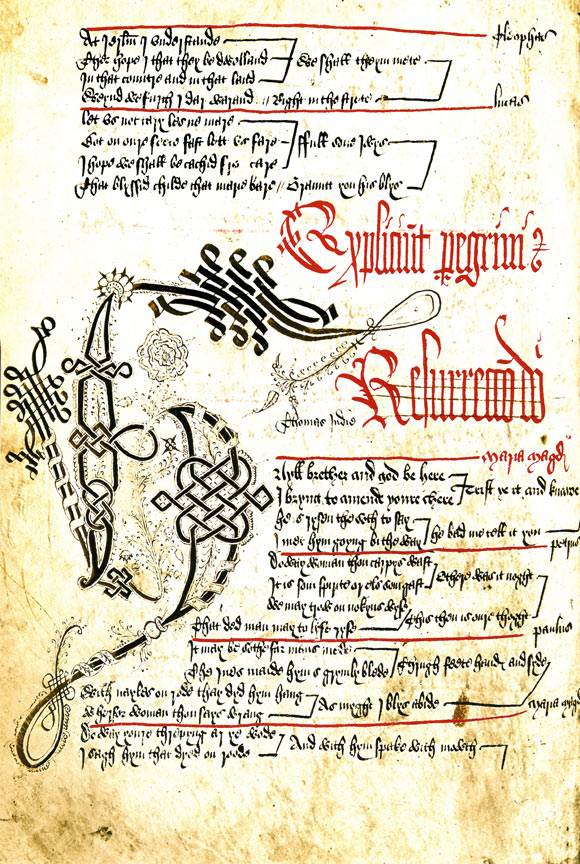 Cleophas
At Ierlm I vnderstande
Ther hope I that thay be dwelland
We shall theym mete
In that contre and in that land
Weynd we furth I dar warand // Right in the strete
lucas
Let vs not tary les ne mare
Bot on oure feete fast lett vs fare
Ffull sone Iwys
I hope we shall be cachid fro care
That blyssid childe that marie bare // Grauntt you his blys
Explicit peregrini
Resurreccio dni
Thomas Indie
maria magd
hayll brether and god be here
I bryng to amende youre chere
Trist ye it and knawe
he is rysen the soth to say
I met hym goyng bi the way
he bad me tell it you
petrus
Do way woman thou carpys wast
It is som spirite or els som gast
Othere was it noght
We may trow on nokyns wyse
That ded man may to lyfe ryse
This then is oure thoght
paulus
It may be sothe for mans mede
The Iues maide hym grymly blede
Thrugh feete handys and syde
With nayles on rode thay dyd hym hang
Wherfor woman thou says wrang
As myght I blys abide
maria magd
Do way youre threpyng ar ye wode
I sagh hym that dyed on roode
And with hym spake with mowth